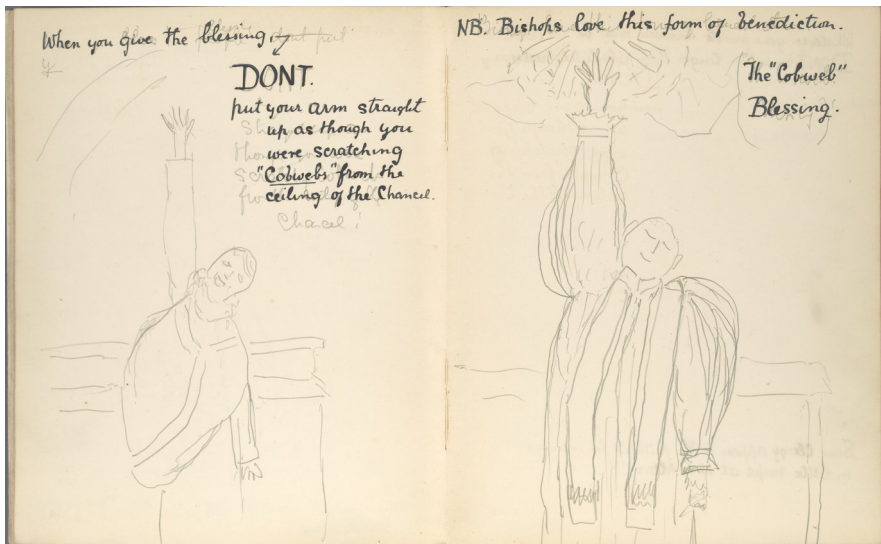 When you give the blessing,
DONT.
put your arm straight
up as though you
were scratching
"Cobwebs" from the
ceiling of the Chancel.
Chacel!
NB. Bishops love this form of benediction.
The "Cobweb"
Blessing.